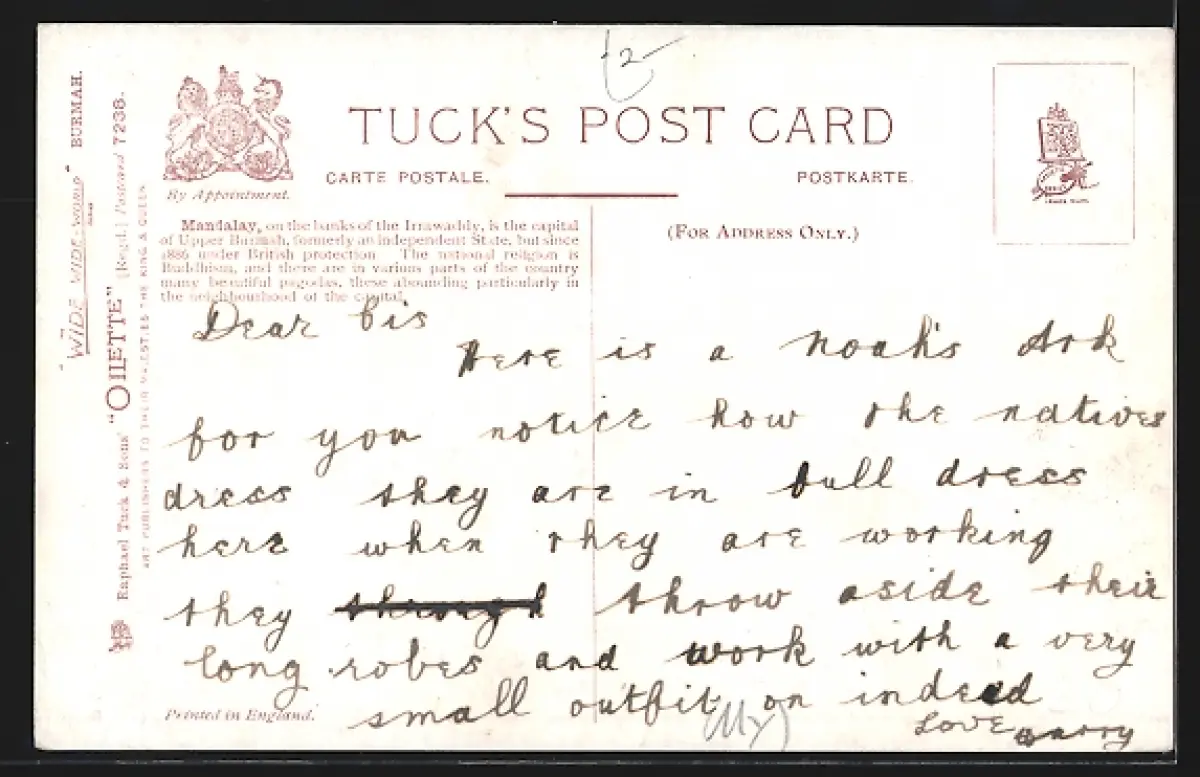 "WIDE-WIDE-WORLD" BURMAH.
Raphael Tuck & Sons' "OILETTE" [Regd.] Postcard 7238.
ART PUBLISHERS TO THEIR MAJESTIES THE KING & QUEEN.
2
TUCK'S POST CARD
CARTE POSTALE. POSTKARTE.
By Appointment.
(FOR ADDRESS ONLY.)
Mandalay, on the banks of the Irrawaddy, is the capital
of Upper Burmah, formerly an independent State, but since
1886 under British protection. The national religion is
Buddhism, and there are in various parts of the country
many beautiful pagodas, these abounding particularly in
the neighbourhood of the capital.
Dear Sis
Here is a Noah's Ark
for you notice how the natives
dress they are in full dress
here when they are working
they through throw aside their
long robes and work with a very
small outfit on indeed
Love
Printed in England.
(My)